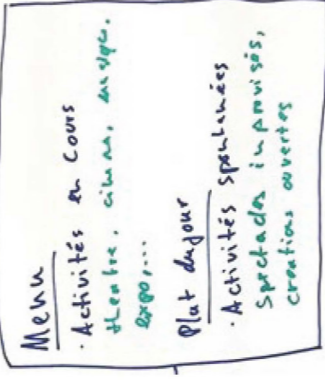 Menu
· Activités en Cours
theatre, cinéma, musique.
expo,...
Plat du jour
· Activités spontanées
Spectacles improvisés,
creations ouvertes